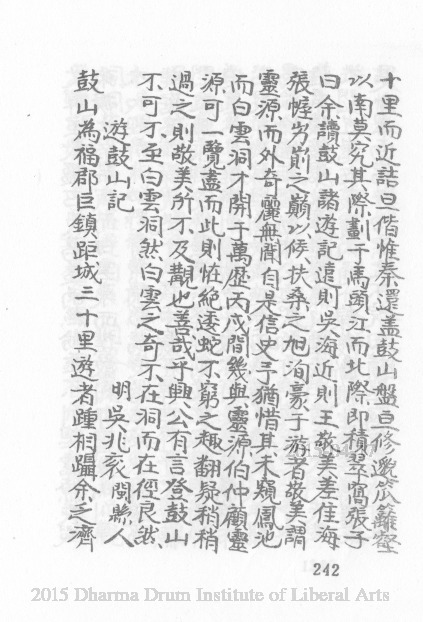 十里而近詰旦偕惟秦還蓋鼓山盤亘修邈茷籬壑
以南莫究其際劃于馬頭江而北際即積翠窩張子
曰余讀鼓山諸遊記遠則吳海近則王敬美差佳海
張幄岃崱之巔以候扶桑之旭洵豪于游者敬美謂
靈源而外奇麗無聞自是信史予猶惜其未窺鳳池
而白雲洞才開于萬歷丙戊間幾與靈源伯仲顧靈
源可一覽盡而此則恠絕逶蛇不窮之趣翻疑稍稍
過之則敬美所不及覩也善哉乎興公有言登鼓山
不可不至白雲洞然白雲之奇不在洞而在徑良然
遊鼓山記
明吳兆袞閩縣人
鼓山為福郡巨鎮距城三十里遊者踵相躡余之濟
242
2015 Dharma Drum Institute of Liberal Arts